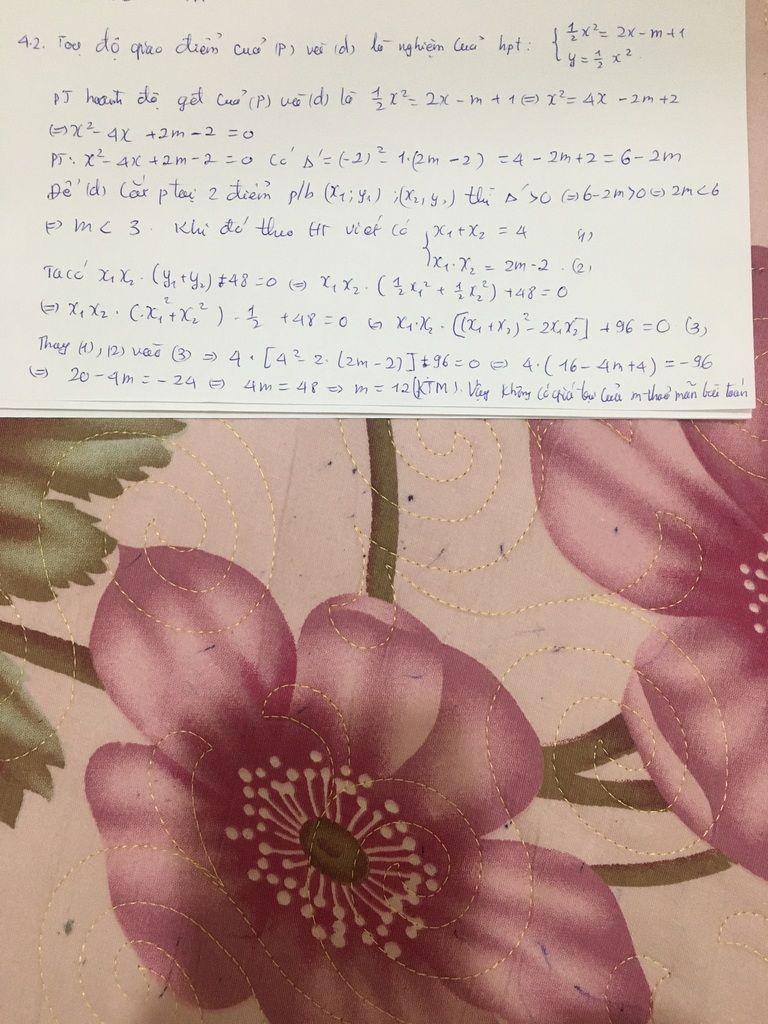 4.2. Toạ độ giao điểm của (P) với (d) là nghiệm của hpt: { ½x² = 2x - m + 1
y = ½ x²
PT hoành độ gđ của (P) với (d) là ½x² = 2x - m + 1 ⇔ x² = 4x - 2m + 2
⇔ x² - 4x + 2m - 2 = 0
PT: x² - 4x + 2m - 2 = 0 có Δ' = (-2)² - 1.(2m - 2) = 4 - 2m + 2 = 6 - 2m
Để (d) cắt p tại 2 điểm p/b (x₁; y₁) ; (x₂, y₂) thì Δ' > 0 ⇔ 6 - 2m > 0 ⇔ 2m < 6
⇔ m < 3. Khi đó theo HT viét có { x₁ + x₂ = 4 (1)
x₁ . x₂ = 2m - 2 . (2)
Ta có x₁x₂ . (y₁ + y₂) + 48 = 0 ⇔ x₁x₂ . (½x₁² + ½x₂²) + 48 = 0
⇔ x₁x₂ . (x₁² + x₂²) . ½ + 48 = 0 ⇔ x₁.x₂ . [(x₁ + x₂)² - 2x₁x₂] + 96 = 0 (3)
Thay (1), (2) vào (3) ⇒ 4 . [4² - 2 . (2m - 2)] + 96 = 0 ⇔ 4 . (16 - 4m + 4) = -96
⇔ 20 - 4m = -24 ⇔ 4m = 48 ⇒ m = 12 (KTM). Vậy không có giá trị của m thoả mãn bài toán